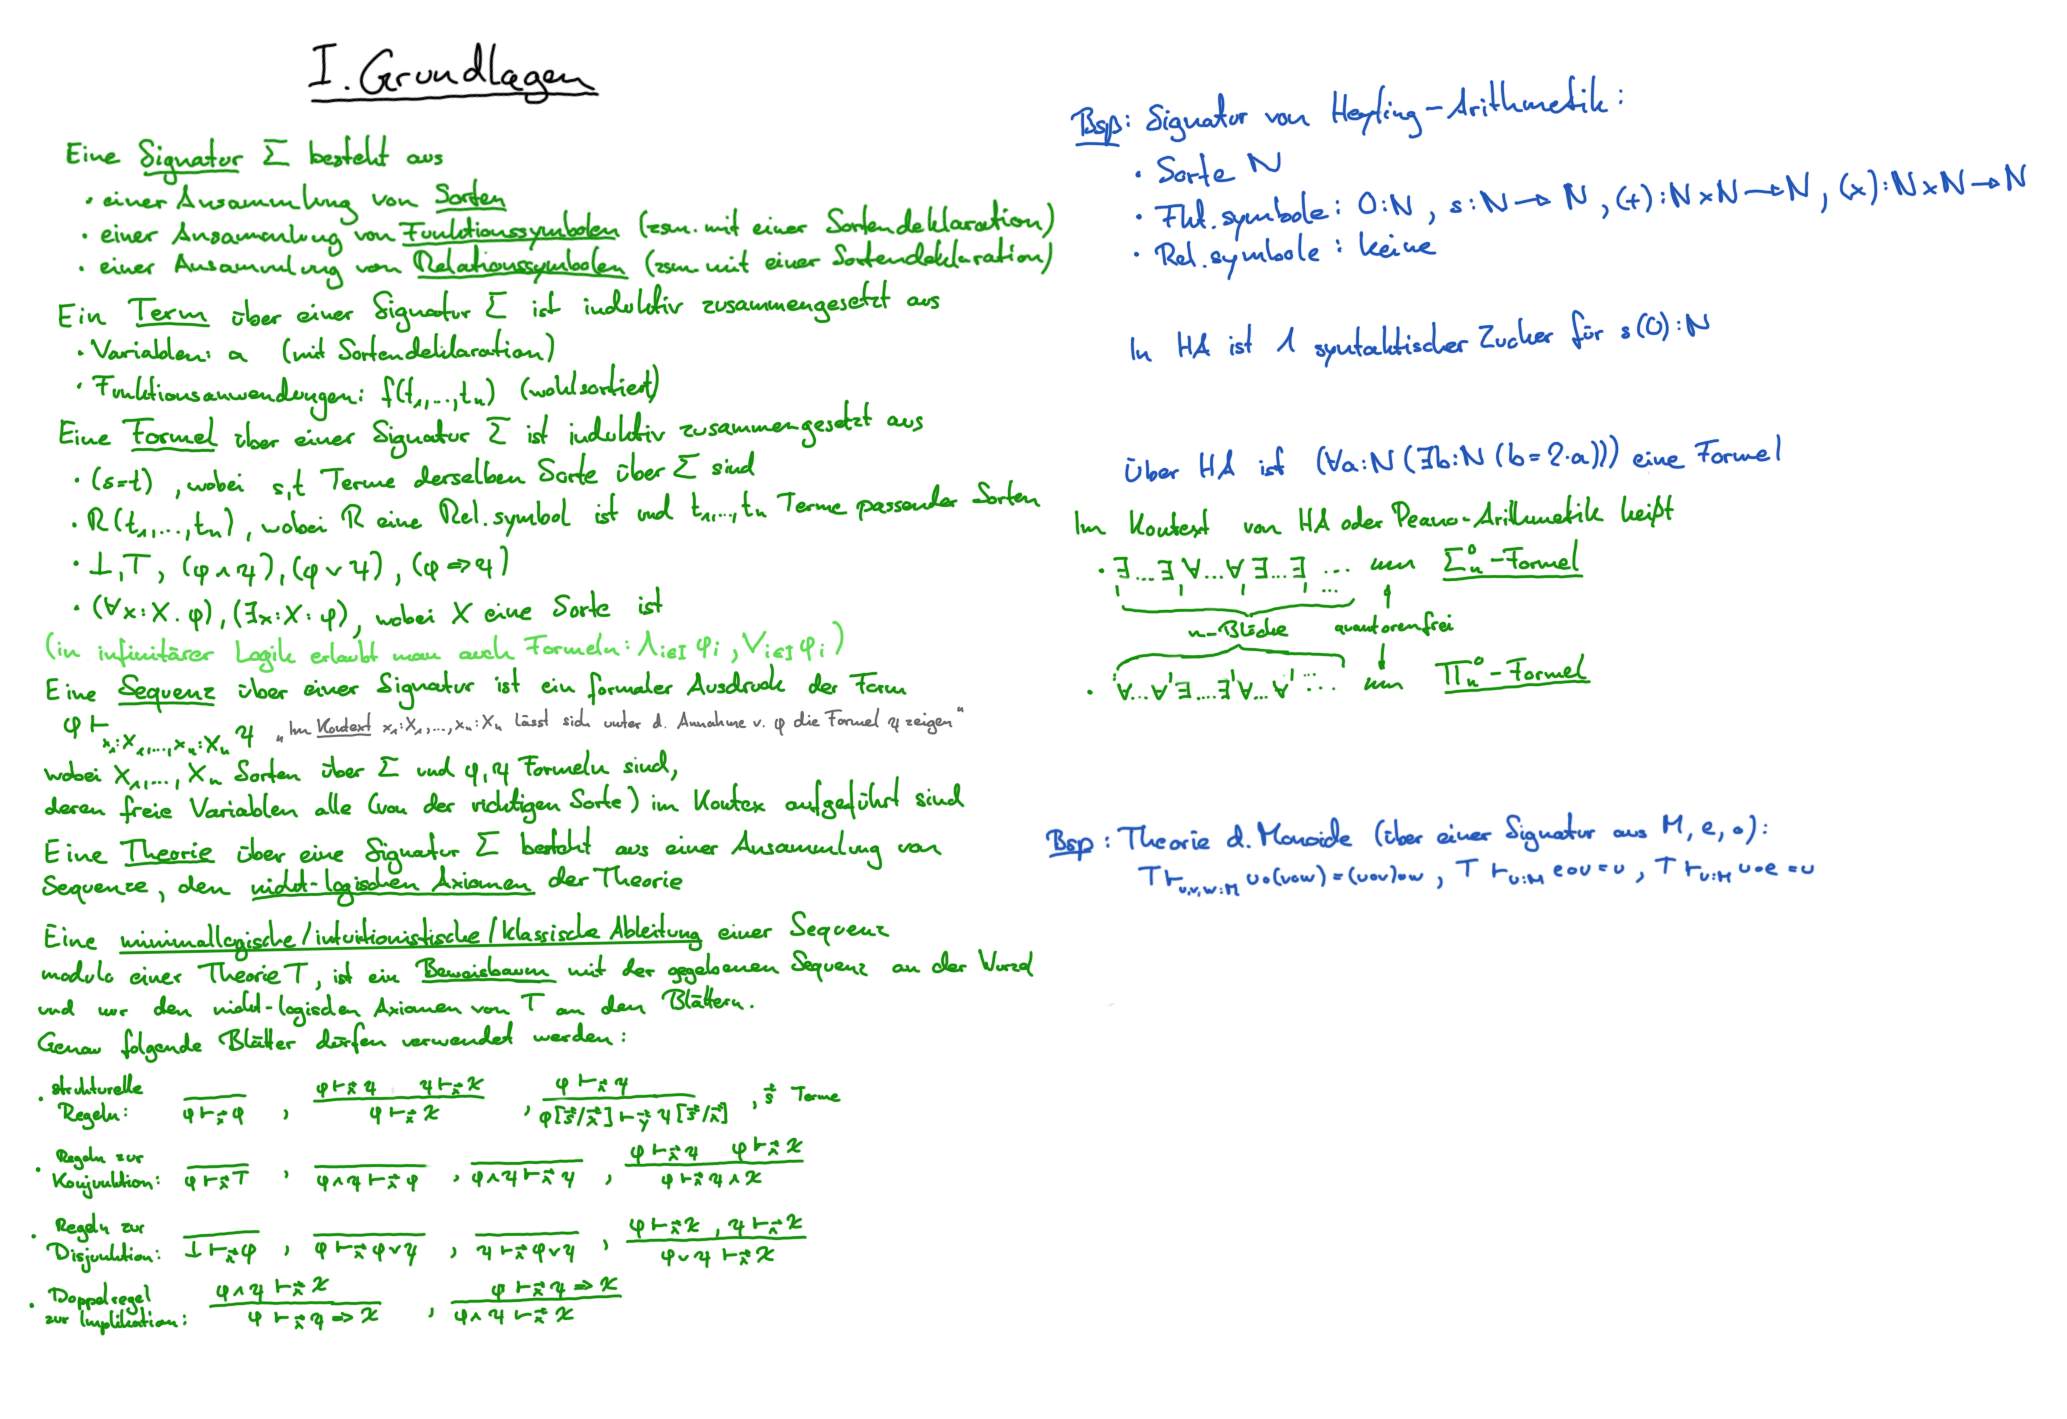 I. Grundlagen
Eine Signatur Σ besteht aus
• einer Ansammlung von Sorten
• einer Ansammlung von Funktionssymbolen (zsm. mit einer Sortendeklaration)
• einer Ansammlung von Relationssymbolen (zsm. mit einer Sortendeklaration)
Ein Term über einer Signatur Σ ist induktiv zusammengesetzt aus
• Variablen: a (mit Sortendeklaration)
• Funktionsanwendungen: f(t₁,...,tₙ) (wohlsortiert)
Eine Formel über einer Signatur Σ ist induktiv zusammengesetzt aus
• (s=t), wobei s,t Terme derselben Sorte über Σ sind
• R(t₁,...,tₙ), wobei R eine Rel.symbol ist und t₁,...,tₙ Terme passender Sorten
• ⊥,⊤, (φ∧ψ),(φ∨ψ), (φ⇒ψ)
• (∀x:X.φ),(∃x:X:φ), wobei X eine Sorte ist
(in infinitärer Logik erlaubt man auch Formeln: ⋀i∈I φi, ⋁i∈I φi)
Eine Sequenz über einer Signatur ist ein formaler Ausdruck der Form
φ ⊢x₁:X₁,...,xₙ:Xₙ ψ „Im Kontext x₁:X₁,...,xₙ:Xₙ lässt sich unter d. Annahme v. φ die Formel ψ zeigen"
wobei X₁,..., Xₙ Sorten über Σ und φ,ψ Formeln sind,
deren freie Variablen alle (von der richtigen Sorte) im Kontex aufgeführt sind
Eine Theorie über eine Signatur Σ besteht aus einer Ansammlung von
Sequenze, den nicht-logischen Axiomen der Theorie
Eine minimallogische/intuitionistische/klassische Ableitung einer Sequenz
modulo einer Theorie T, ist ein Beweisbaum mit der gegebenen Sequenz an der Wurzel
und nur den nicht-logischen Axiomen von T an den Blättern.
Genau folgende Blätter dürfen verwendet werden:
• strukturelle Regeln: ―― / φ ⊢x⃗ φ , φ ⊢x⃗ ψ ψ ⊢x⃗ χ / φ ⊢x⃗ χ , φ ⊢x⃗ ψ / φ[s⃗/x⃗] ⊢y⃗ ψ[s⃗/x⃗] , s⃗ Terme
• Regeln zur Konjunktion: ―― / φ ⊢x⃗ ⊤ , ―― / φ∧ψ ⊢x⃗ φ , ―― / φ∧ψ ⊢x⃗ ψ , φ ⊢x⃗ ψ φ ⊢x⃗ χ / φ ⊢x⃗ ψ∧χ
• Regeln zur Disjunktion: ―― / ⊥ ⊢x⃗ φ , ―― / φ ⊢x⃗ φ∨ψ , ―― / ψ ⊢x⃗ φ∨ψ , φ ⊢x⃗ χ , ψ ⊢x⃗ χ / φ∨ψ ⊢x⃗ χ
• Doppelregel zur Implikation: φ∧ψ ⊢x⃗ χ / φ ⊢x⃗ ψ ⇒ χ , φ ⊢x⃗ ψ ⇒ χ / φ∧ψ ⊢x⃗ χ
Bsp: Signatur von Heyting-Arithmetik:
• Sorte N
• Fkt.symbole: 0:N, s:N→N, (+):N×N→N, (×):N×N→N
• Rel.symbole: keine
In HA ist 1 syntaktischer Zucker für s(0):N
Über HA ist (∀a:N(∃b:N(b=2·a))) eine Formel
Im Kontext von HA oder Peano-Arithmetik heißt
• ∃...∃ ∀...∀ ∃...∃ ... Σₙ⁰-Formel
n-Blöcke quantorenfrei
• ∀...∀ ∃...∃ ∀...∀ ... Πₙ⁰-Formel
Bsp: Theorie d. Monoide (über einer Signatur aus M, e, ∘):
⊤ ⊢u,v,w:M u∘(v∘w)=(u∘v)∘w, ⊤ ⊢u:M e∘u=u, ⊤ ⊢u:M u∘e=u